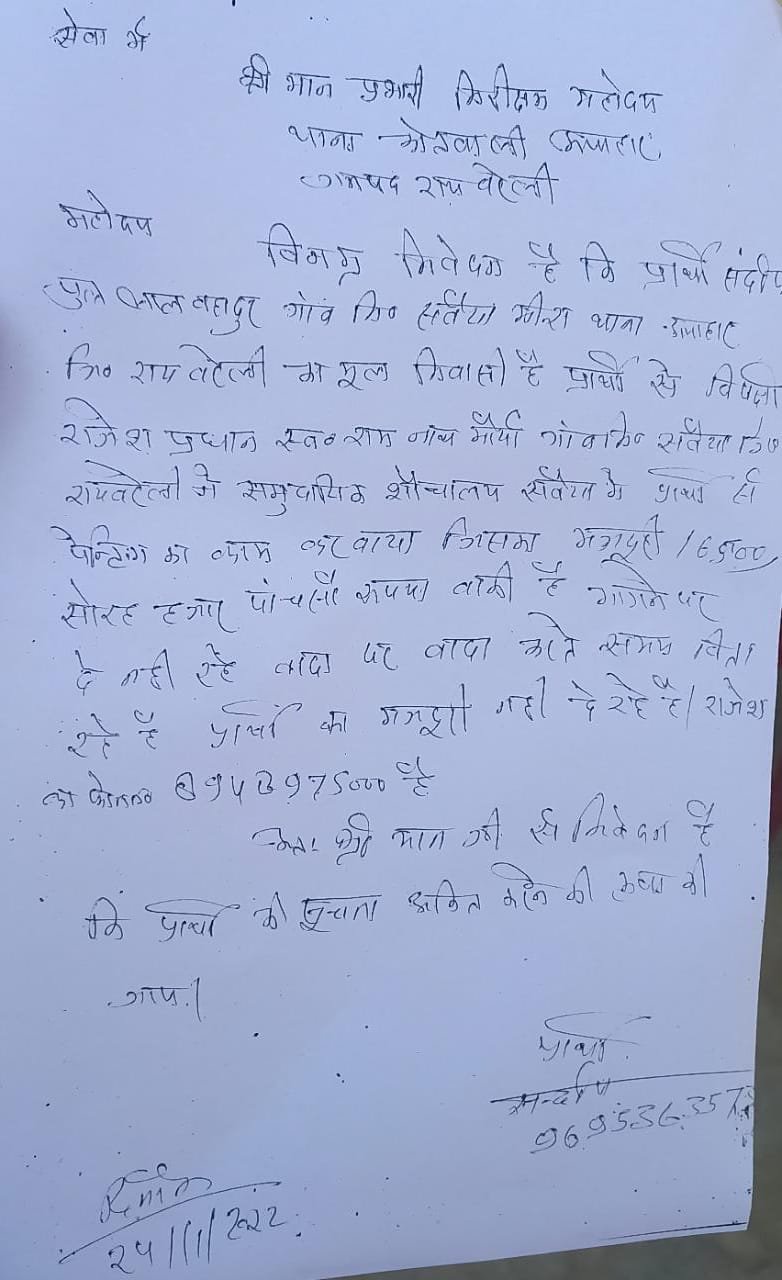 सेवा में
श्री मान प्रभारी निरीक्षक महोदय
थाना कोतवाली ऊंचाहार
जनपद राय बरेली
महोदय
विनम्र निवेदन है कि प्रार्थी संदीप
पुत्र लाल बहादुर गांव नि० सवैया थाना ऊंचाहार
जि० राय बरेली का मूल निवासी है प्रार्थी से विपक्षी
राजेश प्रधान स्व० राम नाथ मौर्या गांव नि० सवैया जि०
रायबरेली ने समुदायिक शौचालय सवैया में प्रार्थी से
पेन्टिंग का काम करवाया जिसका मजदूरी 16,500
सोरह हजार पांच सौ रूपया बाकी है मांगने पर
दे नही रहे वादा पर वादा करते समय बिता
रहे है प्रार्थी का मजदूरी नही दे रहे है। राजेश
का फोन न० है
अतः श्री मान जी से निवेदन है
कि प्रार्थी की सूचना अंकित करने की कृपा की
जाय।
प्रार्थी
सन्दीप
969536357
दिनांक
24/11/2022